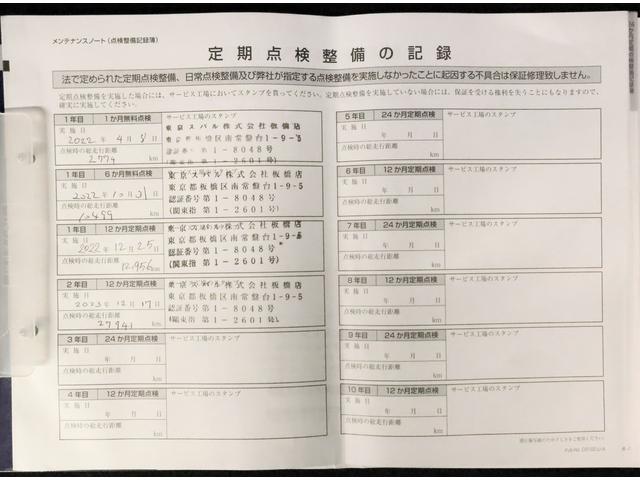 メンテナンスノート（点検整備記録簿）
定期点検整備の記録
法で定められた定期点検整備、日常点検整備及び弊社が指定する点検整備を実施しなかったことに起因する不具合は保証修理致しません。
定期点検整備を実施した場合には、サービス工場においてスタンプを貰ってください。定期点検整備を実施していない場合には、保証を受ける権利を失うことにもなりますので、
確実に実施してください。
1年目 1か月無料点検 サービス工場のスタンプ
実施日
2022年4月
点検時の総走行距離
2774 km
東京スバル株式会社板橋店
東京都板橋区南常盤台1-9-5
認証番号第1-8048号
(関東指第1-2601号)
1年目 6か月無料点検 サービス工場のスタンプ
実施日
2022年10月31日
点検時の総走行距離
10499 km
東京スバル株式会社板橋店
東京都板橋区南常盤台1-9-5
認証番号第1-8048号
(関東指第1-2601号)
1年目 12か月定期点検 サービス工場のスタンプ
実施日
2022年12月25日
点検時の総走行距離
12,956 km
東京スバル株式会社板橋店
東京都板橋区南常盤台1-9-5
認証番号第1-8048号
(関東指第1-2601号)
2年目 12か月定期点検 サービス工場のスタンプ
実施日
2023年12月17日
点検時の総走行距離
27941 km
東京スバル株式会社板橋店
東京都板橋区南常盤台1-9-5
認証番号第1-8048号
(関東指第1-2601号)
3年目 24か月定期点検 サービス工場のスタンプ
実施日
年 月 日
点検時の総走行距離
km
4年目 12か月定期点検 サービス工場のスタンプ
実施日
年 月 日
点検時の総走行距離
km
5年目 24か月定期点検 サービス工場のスタンプ
実施日
年 月 日
点検時の総走行距離
km
6年目 12か月定期点検 サービス工場のスタンプ
実施日
年 月 日
点検時の総走行距離
km
7年目 24か月定期点検 サービス工場のスタンプ
実施日
年 月 日
点検時の総走行距離
km
8年目 12か月定期点検 サービス工場のスタンプ
実施日
年 月 日
点検時の総走行距離
km
9年目 24か月定期点検 サービス工場のスタンプ
実施日
年 月 日
点検時の総走行距離
km
10年目 12か月定期点検 サービス工場のスタンプ
実施日
年 月 日
点検時の総走行距離
km